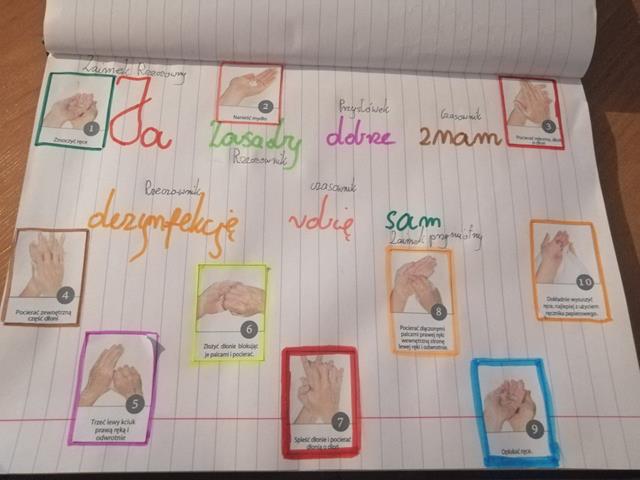 Zaimek Rzeczowny
Przysłówek
Czasownik
1
Zmoczyć ręce
Ja
2
Nanieść mydło
zasady
Rzeczownik
dobrze
znam
3
Rzeczownik
czasownik
dezynfekcję
robię
sam
Zaimek przymiotny
4
Pocierać zewnętrzną
część dłoni
6
Złożyć dłonie blokując
je palcami i pocierać.
8
Pocierać złączonymi
palcami prawej ręki
wewnętrzną stronę
lewej ręki i odwrotnie.
10
Dokładnie wysuszyć
ręce, najlepiej z użyciem
ręcznika papierowego.
5
Trzeć lewy kciuk
prawą ręką i
odwrotnie
7
Spleść dłonie i pocierać
dłonią o dłoń
9
Opłukać ręce.